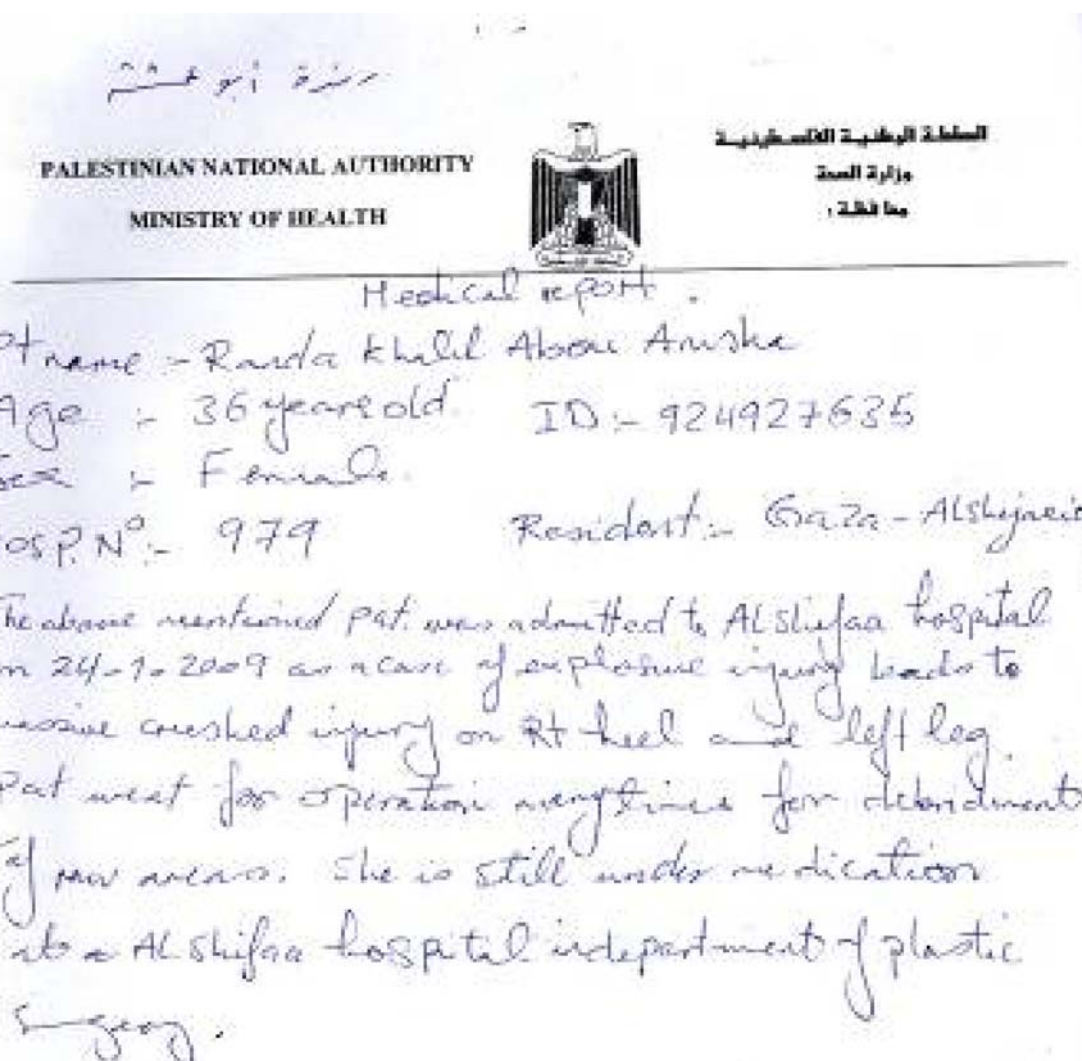 رندة أبو
PALESTINIAN NATIONAL AUTHORITY
MINISTRY OF HEALTH
السلطة الوطنية الفلسطينية
وزارة الصحة
محافظة :
Medical report .
name :- Randa Khalil Abou Anusha
Age :- 36 years old. ID :- 924927635
Sex :- Female.
Hosp. Nº :- 979 Resident :- Gaza - Alshijaeia
The above mentioned pat. was admitted to Al Shifaa hospital
on 24-1-2009 as a case of explosive injury leads to
massive crushed injury on Rt heel and left leg.
Pat went for operation many times for debridment
of raw areas. She is still under medication
at Al Shifaa hospital indepartment of plastic
Surgery.